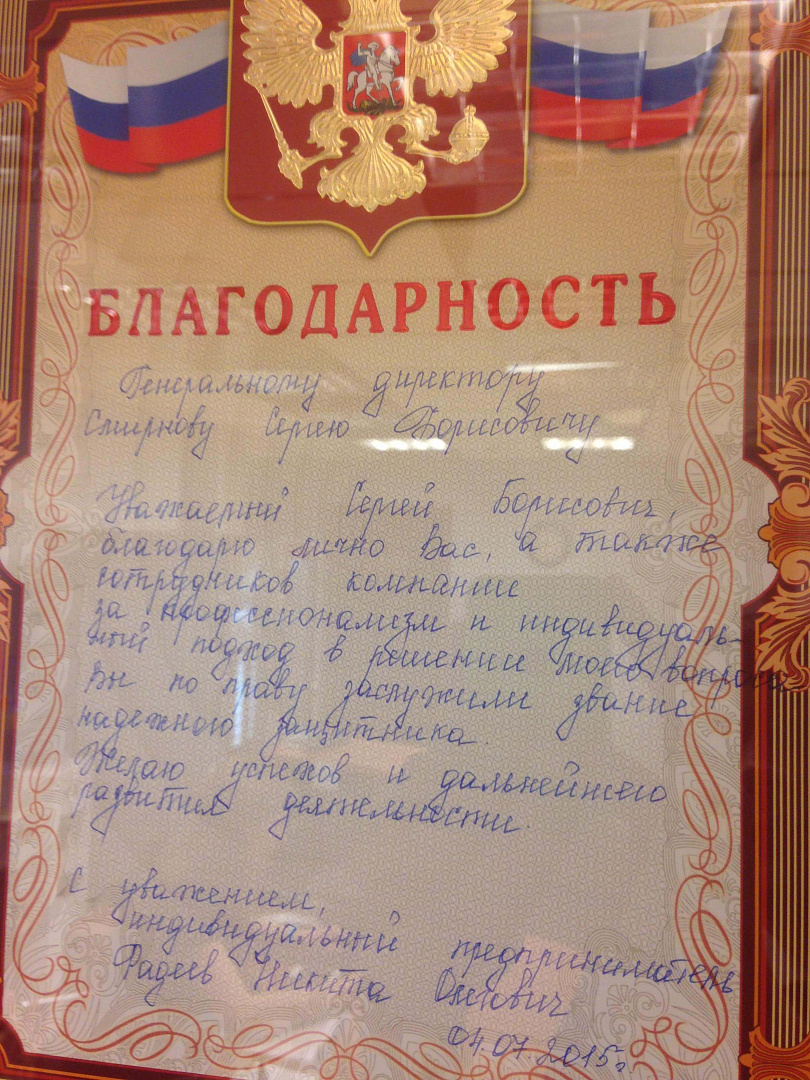 БЛАГОДАРНОСТЬ
Генеральному директору
Смирнову Сергею Борисовичу
Уважаемый Сергей Борисович,
благодарю лично Вас, а также
сотрудников компании
за профессионализм и индивидуаль-
ный подход в решении моего вопроса
Вы по праву заслужили звание
надежного защитника.
Желаю успехов и дальнейшего
развития деятельности.
С уважением,
индивидуальный предприниматель
Фадеев Никита Олегович
04.07.2015г.